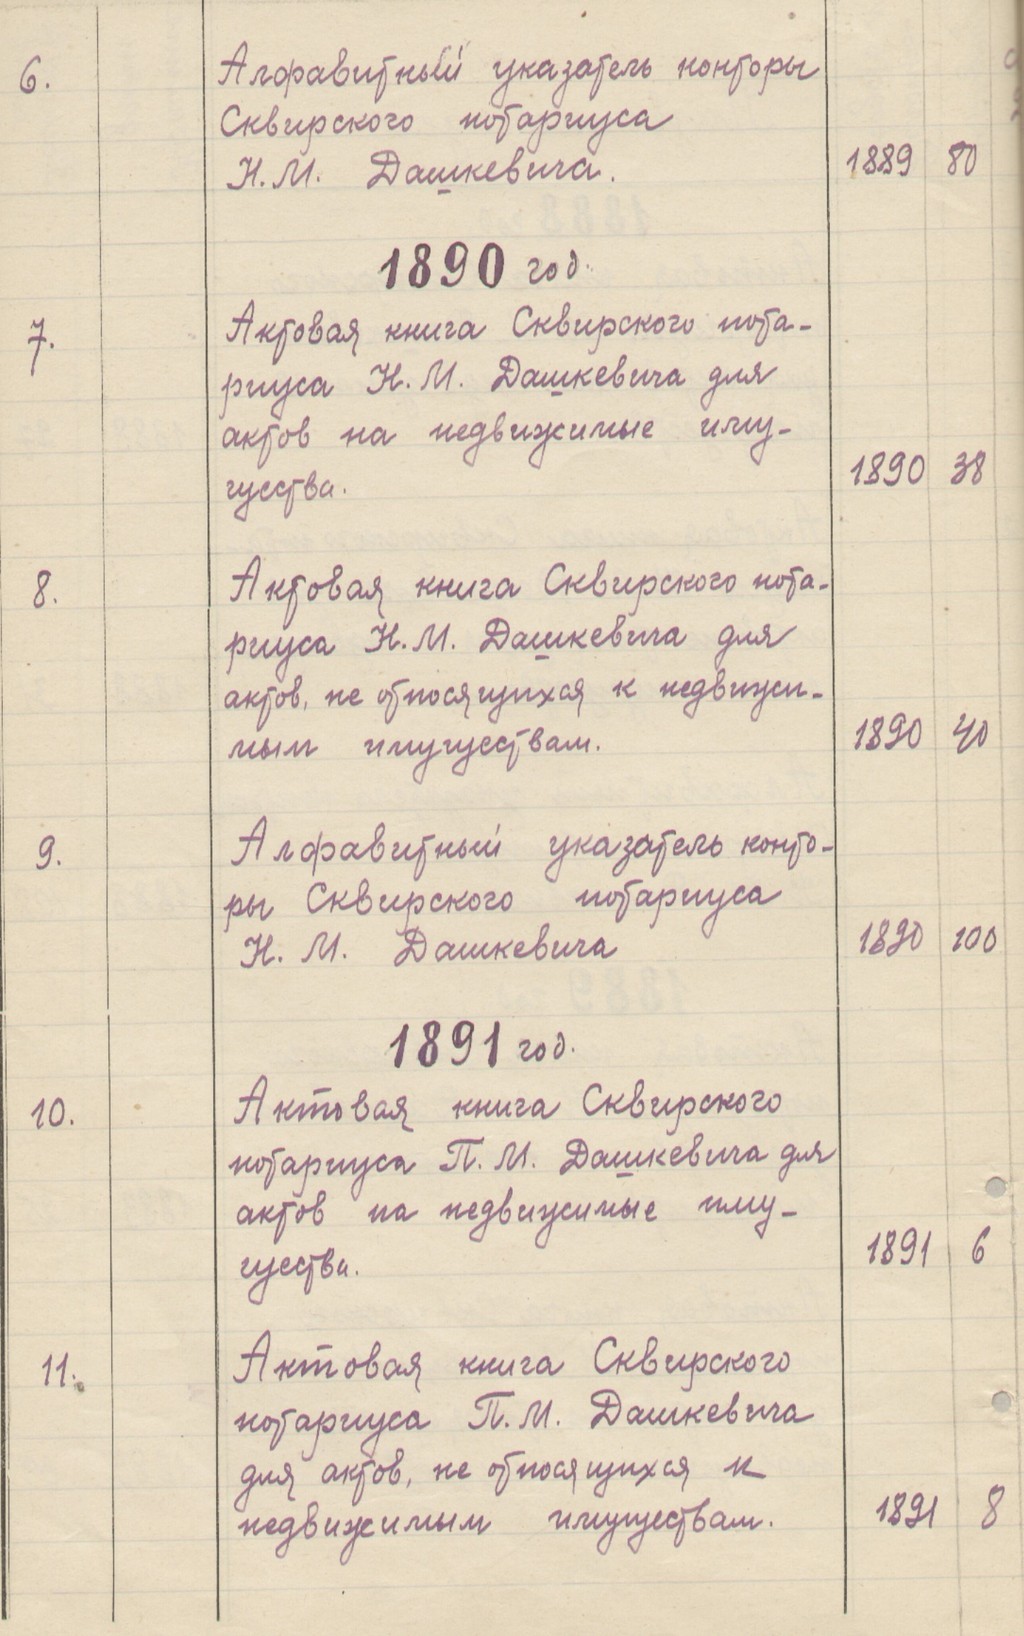 6. Алфавитный указатель конторы
Сквирского нотариуса
Н.М. Дашкевича. 1889 80
1890 год.
7. Актовая книга Сквирского нота-
риуса Н.М. Дашкевича для
актов на недвижимые иму-
щества. 1890 38
8. Актовая книга Сквирского нота-
риуса Н.М. Дашкевича для
актов, не относящихся к недвижи-
мым имуществам. 1890 40
9. Алфавитный указатель конто-
ры Сквирского нотариуса
Н. М. Дашкевича 1890 100
1891 год.
10. Актовая книга Сквирского
нотариуса П.М. Дашкевича для
актов на недвижимые иму-
щества. 1891 6
11. Актовая книга Сквирского
нотариуса П.М. Дашкевича
для актов, не относящихся к
недвижимым имуществам. 1891 8